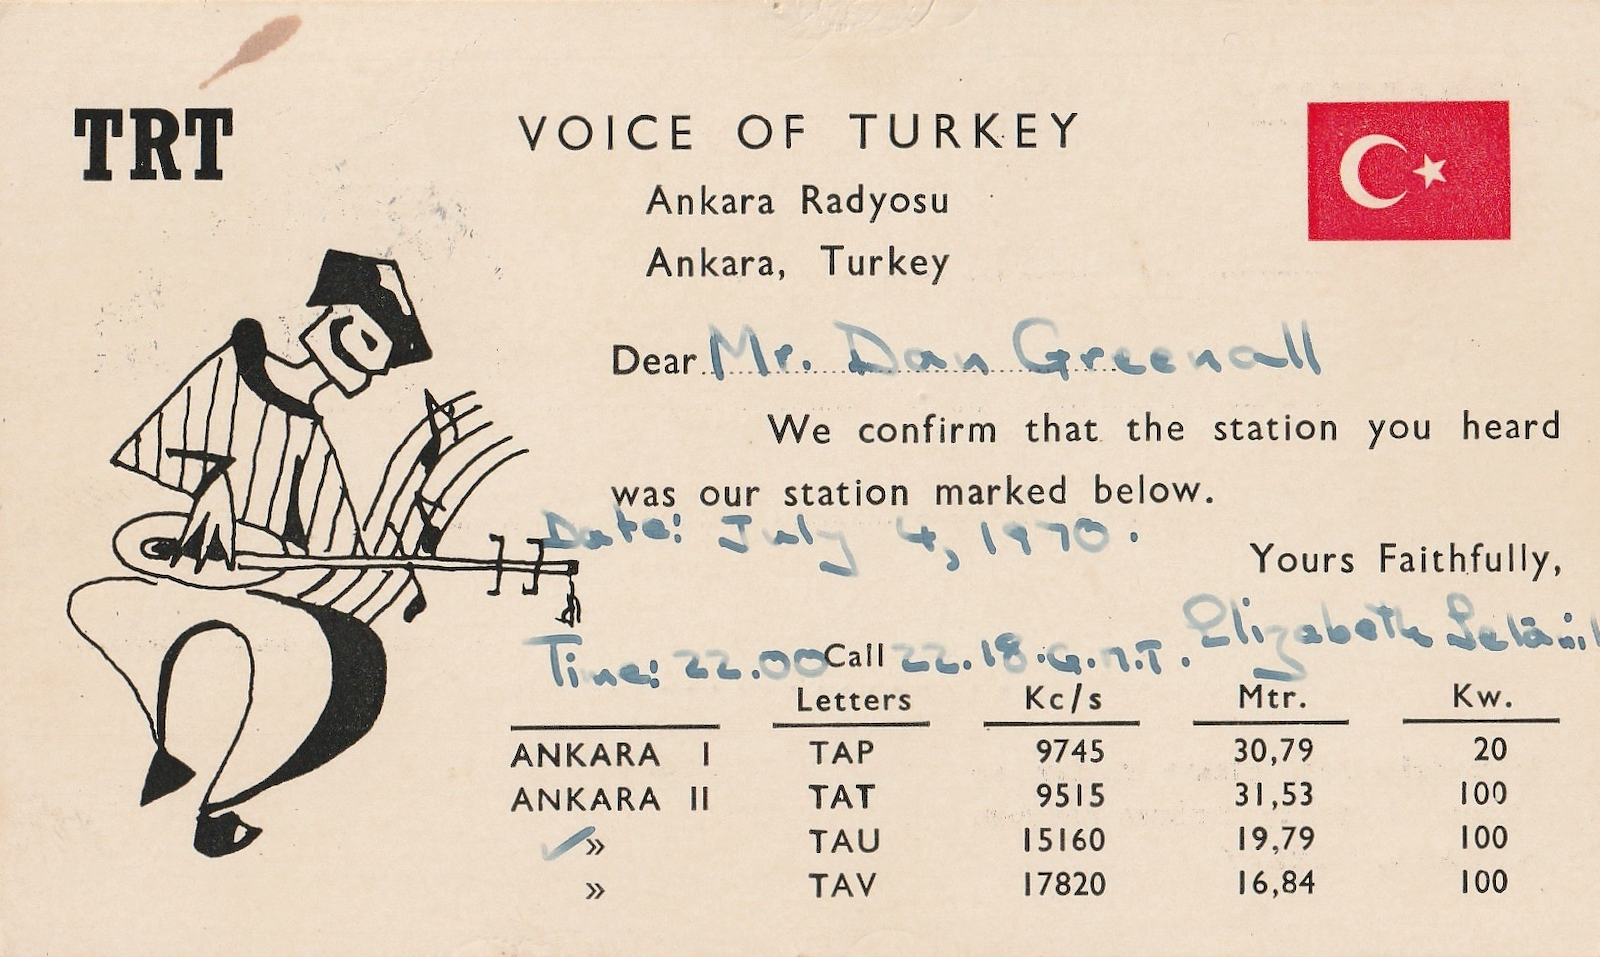 TRT
VOICE OF TURKEY
Ankara Radyosu
Ankara, Turkey
Dear Mr. Dan Greenall
We confirm that the station you heard
was our station marked below.
Date: July 4, 1970.
Yours Faithfully,
Elizabeth
Time: 22.00 22.18.G.M.T.
Call Letters Kc/s Mtr. Kw.
ANKARA I TAP 9745 30,79 20
ANKARA II TAT 9515 31,53 100
✓ » TAU 15160 19,79 100
» TAV 17820 16,84 100